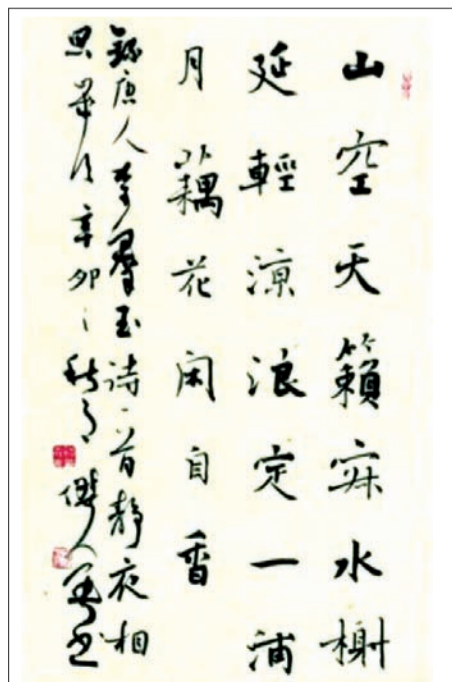 山空天籟寂水榭
延輕涼浪定一浦
月藕花闲自香
録唐人李羣玉詩一首静夜相
思 辛卯之秋月